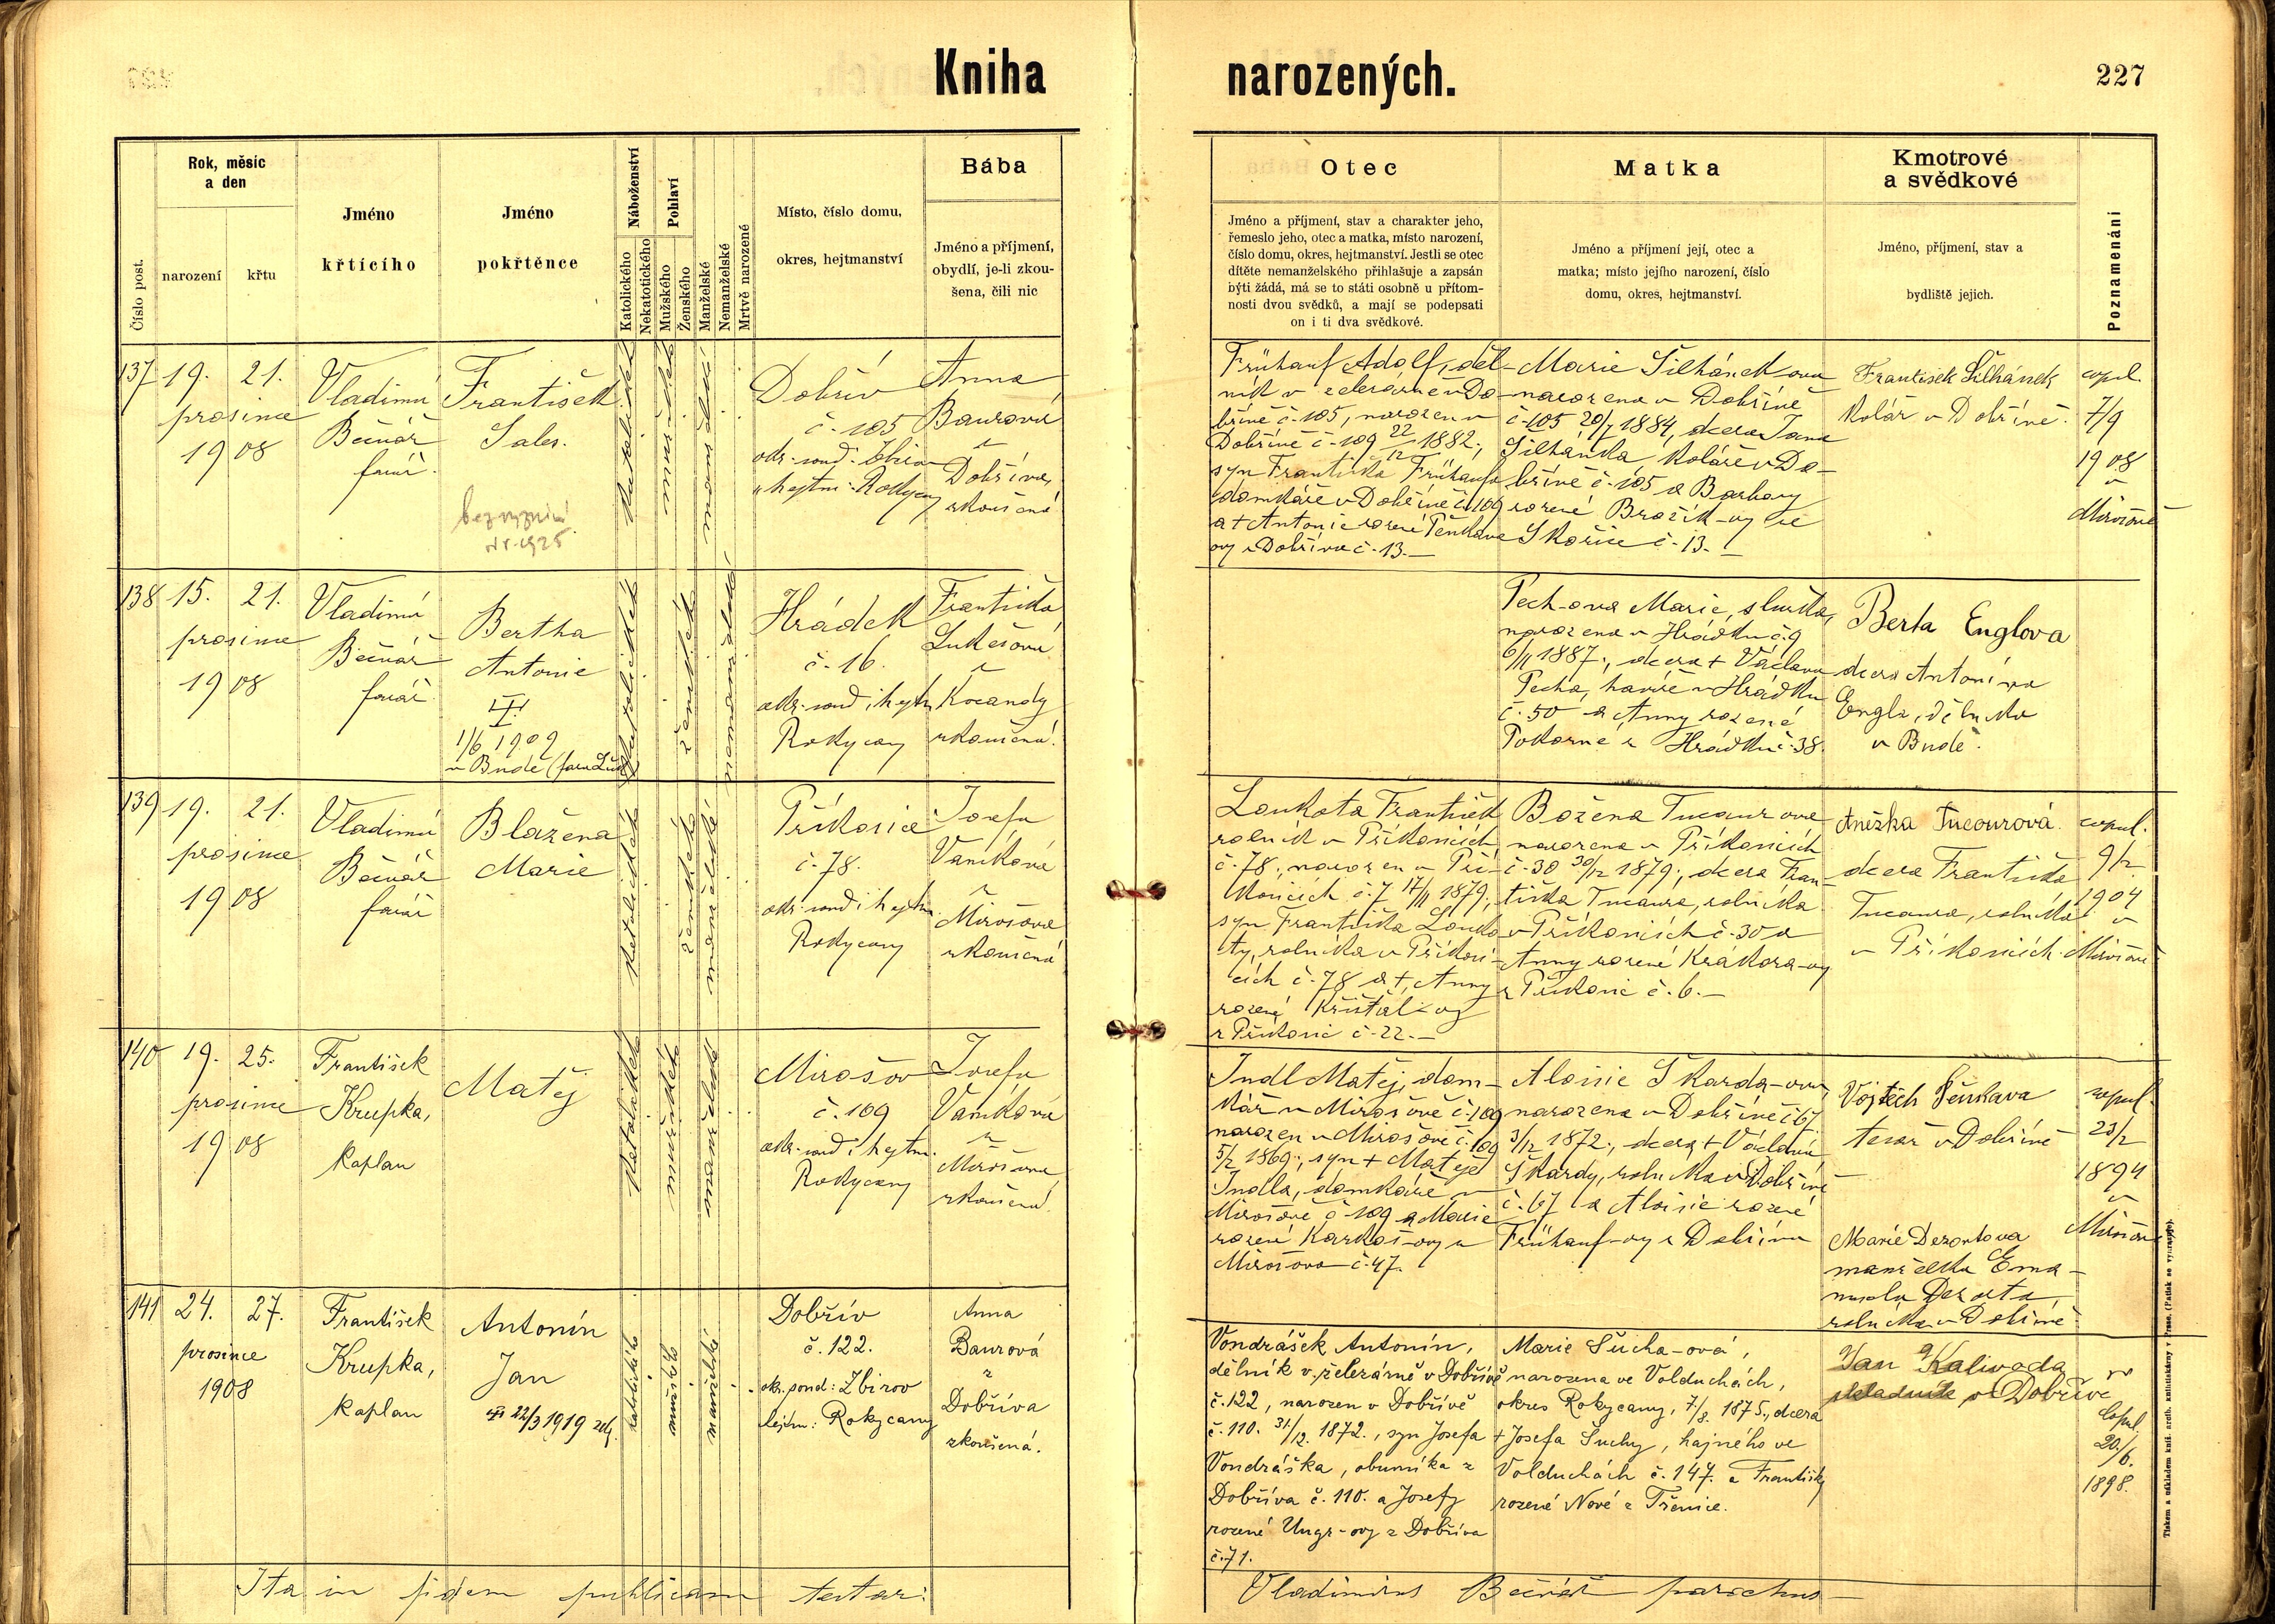 Kniha narozených.
227
Číslo post.
Rok, měsíc
a den
narození
křtu
Jméno
křtícího
Jméno
pokřtěnce
Náboženství
Katolického
Nekatotického
Pohlaví
Mužského
Ženského
Manželské
Nemanželské
Mrtvě narozené
Místo, číslo domu,
okres, hejtmanství
Bába
Jméno a příjmení,
obydlí, je-li zkou-
šena, čili nic
Otec
Jméno a příjmení, stav a charakter jeho,
řemeslo jeho, otec a matka, místo narození,
číslo domu, okres, hejtmanství. Jestli se otec
dítěte nemanželského přihlašuje a zapsán
býti žádá, má se to státi osobně u přítom-
nosti dvou svědků, a mají se podepsati
on i ti dva svědkové.
Matka
Jméno a příjmení její, otec a
matka; místo jejího narození, číslo
domu, okres, hejtmanství.
Kmotrové
a svědkové
Jméno, příjmení, stav a
bydliště jejich.
Poznamenání
137
19.
21.
prosince
1908
Vladimír
Bečvář
farář.
František
Sales.
bez vyznání
katolické
mužské
manželské
Dobřív
č. 105
okr. soud: Zbiroh
hejtm: Rokycany
Anna
Baurová
z
Dobříva,
zkoušená
Frühauf Adolf, děl-
ník v železárně v Do-
břívě č. 105, narozen v
Dobřívě č. 109 22/12 1882;
syn Františka Frühaufa
domkáře v Dobřívě č. 109
a + Antonie rozené Pěnkava
ovy z Dobříva č. 13.—
Marie Šilhánek-ova
narozena v Dobřívě
č. 105 20/7 1884, dcera Jana
Šilhánka koláře v Do-
břívě č. 105 a Barbory
rozené Brožík-ovy ze
Skořice č. 13.—
František Šilhánek
kolář v Dobřívě.
copul.
7/9
1908
v
Mirošově
138
15.
21.
prosince
1908
Vladimír
Bečvář
farář
Bertha
Antonie
1/6 1909
katolické
ženské
nemanželské
Hrádek
č. 16.
okr. soud i hejtm.
Rokycany
Františka
Lukešová
z
Kocandy
zkoušená.
Pech-ova Marie, služka,
narozena v Hrádku č. 9
6/11 1887., dcera + Václava
Pecha, havíře v Hrádku
č. 50 a Anny rozené
Pokorné z Hrádku č. 38.
Berta Englova
dcera Antonína
Engla, dělníka
v Budě.
139
19.
21.
prosince
1908
Vladimír
Bečvář
farář
Blažena
Marie
katolické
ženské
manželské
Příkosice
č. 78.
okr. soud i hejtm.
Rokycany
Josefa
Vaníková
z
Mirošova
zkoušená
Loukota František
rolník v Příkosicích
č. 78., narozen v Pří-
kosicích č. 7 17/11 1879.;
syn Františka Louko
ty, rolníka v Příkosi-
cích č. 78 a +, Anny
rozené Křišťál-ovy
z Příkosic č. 22.—
Božena Tucaur ova
narozena v Příkosicích
č. 30 30/12 1879., dcera Fran-
tiška Tucaura, rolníka
v Příkosicích č. 30 a
Anny rozené Krákora-ovy
z Příkosic č. 6.—
Anežka Tucourová
dcera Františka
Tucaura, rolníka
v Příkosicích.
copul.
9/2
1904
v
Mirošově
140
19.
25.
prosince
1908
František
Krupka,
kaplan
Matěj
katolické
mužské
manželské
Mirošov
č. 109
okr. soud i hejtm.
Rokycany
Josefa
Vaníková
z
Mirošova
zkoušená.
Indl Matěj, dom-
kář v Mirošově č. 109
narozen v Mirošově č. 109
5/2 1869., syn + Matěje
Indla, domkáře v
Mirošově č. 109 a Marie
rozené Karkoš-ovy z
Mirošova č. 47.
Aloisie Škarda-ova,
narozena v Dobřívě č. 67.
3/12 1872., dcera + Václava
Škardy, rolníka v Dobřívě
č. 67 a Aloisie rozené
Frühauf-ovy z Dobříva
Vojtěch Pěnkava
tesař v Dobřívě
Marie Dezortova
manželka Ema-
nuela Dezorta,
rolníka v Dobřívě.
copul.
23/2
1894
v
Mirošově
141
24.
27.
prosince
1908
František
Krupka,
kaplan
Antonín
Jan
22/3 1919
katolického
mužské
manželské
Dobřív
č. 122.
okr. soud: Zbirov
hejtm: Rokycany
Anna
Baurová
z
Dobříva
zkoušená.
Vondrášek Antonín,
dělník v železárně v Dobřívě
č. 122, narozen v Dobřívě
č. 110. 31/12. 1872., syn Josefa
Vondráška, obuvníka z
Dobříva č. 110. a Josefy
rozené Ungr-ovy z Dobříva
č. 71.
Marie Sucha-ová,
narozena ve Volduchách,
okres Rokycany, 7/8. 1875., dcera
+ Josefa Suchy, hajného ve
Volduchách č. 147. a Františky
rozené Nové z Těnice.
Jan Kalivoda
skladník v Dobřívě
Copul.
20./6.
1898.
Ita in fidem publicam testor:
Vladimirus Bečvář parochus—